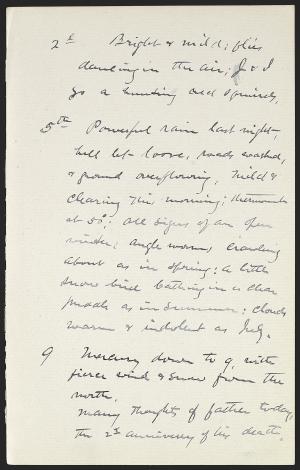 2d Bright & mild; flies
dancing in the air; J & I
go a hunting red squirrels,
5th Powerful rain last night,
hell let loose, roads washed,
& ground overflowing, mild &
clearing this morning; thermometer
at 50°; all signs of an open
winter; angle worms crawling
about as in spring; a little
snow bird bathing in a clear
puddle as in summer; clouds
warm & indolent as July.
9 Mercury down to 9, with
fierce wind & snow from the
north.
Many thoughts of father today,
the 2d anniversary of his death.